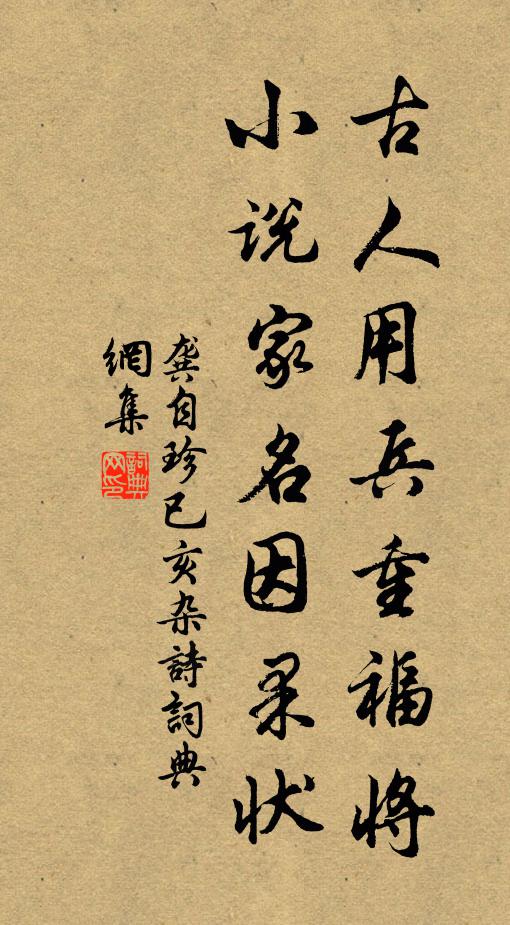 古人用兵重福将
小说家名因果状
龚自珍已亥杂詩詞典
網集
詞典
网印